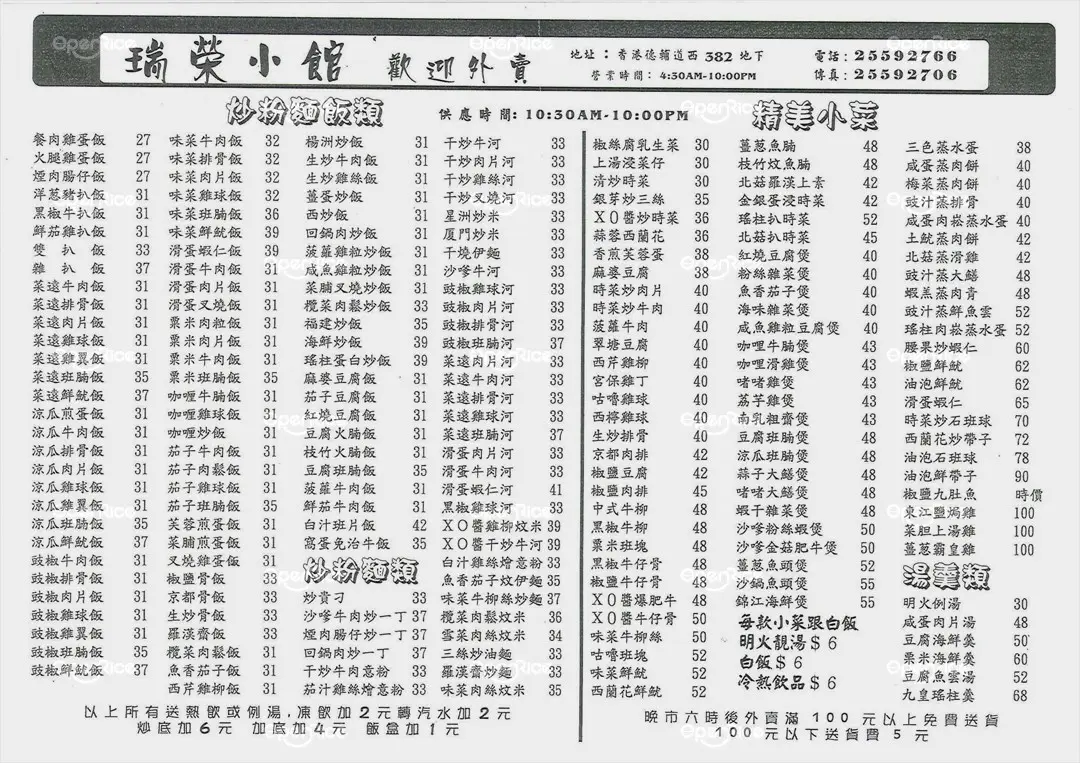 瑞榮小館 歡迎外賣
地址：香港德輔道西 382 地下
營業時間：4:30AM-10:00PM
電話：25592766
傳真：25592796
炒粉麵飯類
供應時間：10:30AM-10:00PM
餐肉雞蛋飯 27
火腿雞蛋飯 27
煙肉腸仔飯 27
洋葱豬扒飯 31
黑椒牛扒飯 31
鮮茄雞扒飯 31
雙扒飯 33
雜扒飯 37
菜遠牛肉飯 31
菜遠排骨飯 31
菜遠肉片飯 31
菜遠雞球飯 31
菜遠雞翼飯 31
菜遠班腩飯 35
菜遠鮮魷飯 37
涼瓜煎蛋飯 31
涼瓜牛肉飯 31
涼瓜排骨飯 31
涼瓜肉片飯 31
涼瓜雞球飯 31
涼瓜雞翼飯 31
涼瓜班腩飯 35
涼瓜鮮魷飯 37
豉椒牛肉飯 31
豉椒排骨飯 31
豉椒肉片飯 31
豉椒雞球飯 31
豉椒雞翼飯 31
豉椒班腩飯 35
豉椒鮮魷飯 37
味菜牛肉飯 32
味菜排骨飯 32
味菜肉片飯 32
味菜雞球飯 32
味菜班腩飯 36
味菜鮮魷飯 39
滑蛋蝦仁飯 39
滑蛋牛肉飯 31
滑蛋肉片飯 31
滑蛋叉燒飯 31
粟米肉粒飯 31
粟米肉片飯 31
粟米牛肉飯 31
粟米班腩飯 35
咖喱牛腩飯 31
咖喱雞球飯 31
咖喱炒飯 31
茄子牛肉飯 31
茄子肉鬆飯 31
茄子雞球飯 31
茄子班腩飯 35
芙蓉煎蛋飯 31
菜脯煎蛋飯 31
叉燒雞蛋飯 31
椒鹽骨飯 33
京都骨飯 33
生炒骨飯 33
羅漢齋飯 33
欖菜肉鬆飯 31
魚香茄子飯 31
西芹雞柳飯 31
楊洲炒飯 31
生炒牛肉飯 31
生炒雞絲飯 31
薑蛋炒飯 31
西炒飯 31
回鍋肉炒飯 31
菠蘿雞粒炒飯 31
咸魚雞粒炒飯 31
菜脯叉燒炒飯 31
欖菜肉鬆炒飯 33
福建炒飯 35
海鮮炒飯 39
瑤柱蛋白炒飯 39
麻婆豆腐飯 31
茄子豆腐飯 31
紅燒豆腐飯 31
豆腐火腩飯 31
枝竹火腩飯 31
豆腐班腩飯 35
菠蘿牛肉飯 31
鮮茄牛肉飯 31
白汁班片飯 42
窩蛋免治牛飯 35
炒粉麵類
炒貴刁 33
沙嗲牛肉炒一丁 37
煙肉腸仔炒一丁 37
回鍋肉炒一丁 37
干炒牛肉意粉 33
茄汁雞絲燴意粉 33
干炒牛河 33
干炒肉片河 33
干炒雞絲河 33
干炒叉燒河 33
星洲炒米 33
厦門炒米 33
干燒伊麵 33
沙嗲牛河 33
豉椒雞球河 33
豉椒肉片河 33
豉椒排骨河 33
豉椒班腩河 37
菜遠肉片河 33
菜遠牛肉河 33
菜遠排骨河 33
菜遠雞球河 33
菜遠班腩河 37
滑蛋肉片河 33
滑蛋牛肉河 33
滑蛋蝦仁河 41
黑椒雞球河 33
XO醬雞柳炆米 39
XO醬干炒牛河 39
白汁雞絲燴意粉 33
魚香茄子炆伊麵 35
味菜牛柳絲炒麵 37
欖菜肉鬆炆米 36
雪菜肉絲炆米 34
三絲炒油麵 33
羅漢齋炒麵 33
味菜肉絲炆米 35
以上所有送熱飲或例湯，凍飲加2元轉汽水加2元
炒底加6元 加底加4元 飯盒加1元
精美小菜
椒絲腐乳生菜 30
上湯浸菜仔 30
清炒時菜 30
銀芽炒三絲 35
XO醬炒時菜 36
蒜蓉西蘭花 36
香煎芙蓉蛋 38
麻婆豆腐 38
時菜炒肉片 40
時菜炒牛肉 40
菠蘿牛肉 40
翠塘豆腐 40
西芹雞柳 40
宮保雞丁 40
咕嚕雞球 40
西檸雞球 40
生炒排骨 40
京都肉排 42
椒鹽豆腐 42
椒鹽肉排 45
中式牛柳 48
黑椒牛柳 48
粟米班塊 48
黑椒牛仔骨 48
椒鹽牛仔骨 48
XO醬爆肥牛 48
XO醬牛仔骨 50
味菜牛柳絲 50
咕嚕班塊 52
味菜鮮魷 52
西蘭花鮮魷 52
薑葱魚腩 48
枝竹炆魚腩 48
北菇羅漢上素 42
金銀蛋浸時菜 42
瑤柱扒時菜 52
北菇扒時菜 45
紅燒豆腐煲 40
粉絲雜菜煲 40
魚香茄子煲 40
海味雜菜煲 40
咸魚雞粒豆腐煲 40
咖哩牛腩煲 43
咖哩滑雞煲 43
啫啫雞煲 43
荔芋雞煲 43
南乳粗齋煲 43
豆腐班腩煲 48
涼瓜班腩煲 48
蒜子大鱔煲 48
啫啫大鱔煲 48
蝦干雜菜煲 48
沙嗲粉絲蝦煲 50
沙嗲金菇肥牛煲 50
薑葱魚頭煲 52
沙鍋魚頭煲 55
錦江海鮮煲 55
每款小菜跟白飯
明火靚湯＄6
白飯＄6
冷熱飲品＄6
三色蒸水蛋 38
咸蛋蒸肉餅 40
梅菜蒸肉餅 40
豉汁蒸排骨 40
咸蛋肉崧蒸水蛋 40
土魷蒸肉餅 42
北菇蒸滑雞 42
豉汁蒸大鱔 48
蝦羔蒸肉青 48
豉汁蒸鮮魚雲 52
瑤柱肉崧蒸水蛋 52
腰果炒蝦仁 60
椒鹽鮮魷 62
油泡鮮魷 62
滑蛋蝦仁 65
時菜炒石班球 70
西蘭花炒帶子 72
油泡石班球 78
油泡鮮帶子 90
椒鹽九肚魚 時價
東江鹽焗雞 100
菜胆上湯雞 100
薑葱霸皇雞 100
湯羹類
明火例湯 30
咸蛋肉片湯 48
豆腐海鮮羹 50
粟米海鮮羹 60
豆腐魚雲湯 52
九皇瑤柱羹 68
晚市六時後外賣滿 100 元以上免費送貨
100 元以下送貨費 5 元